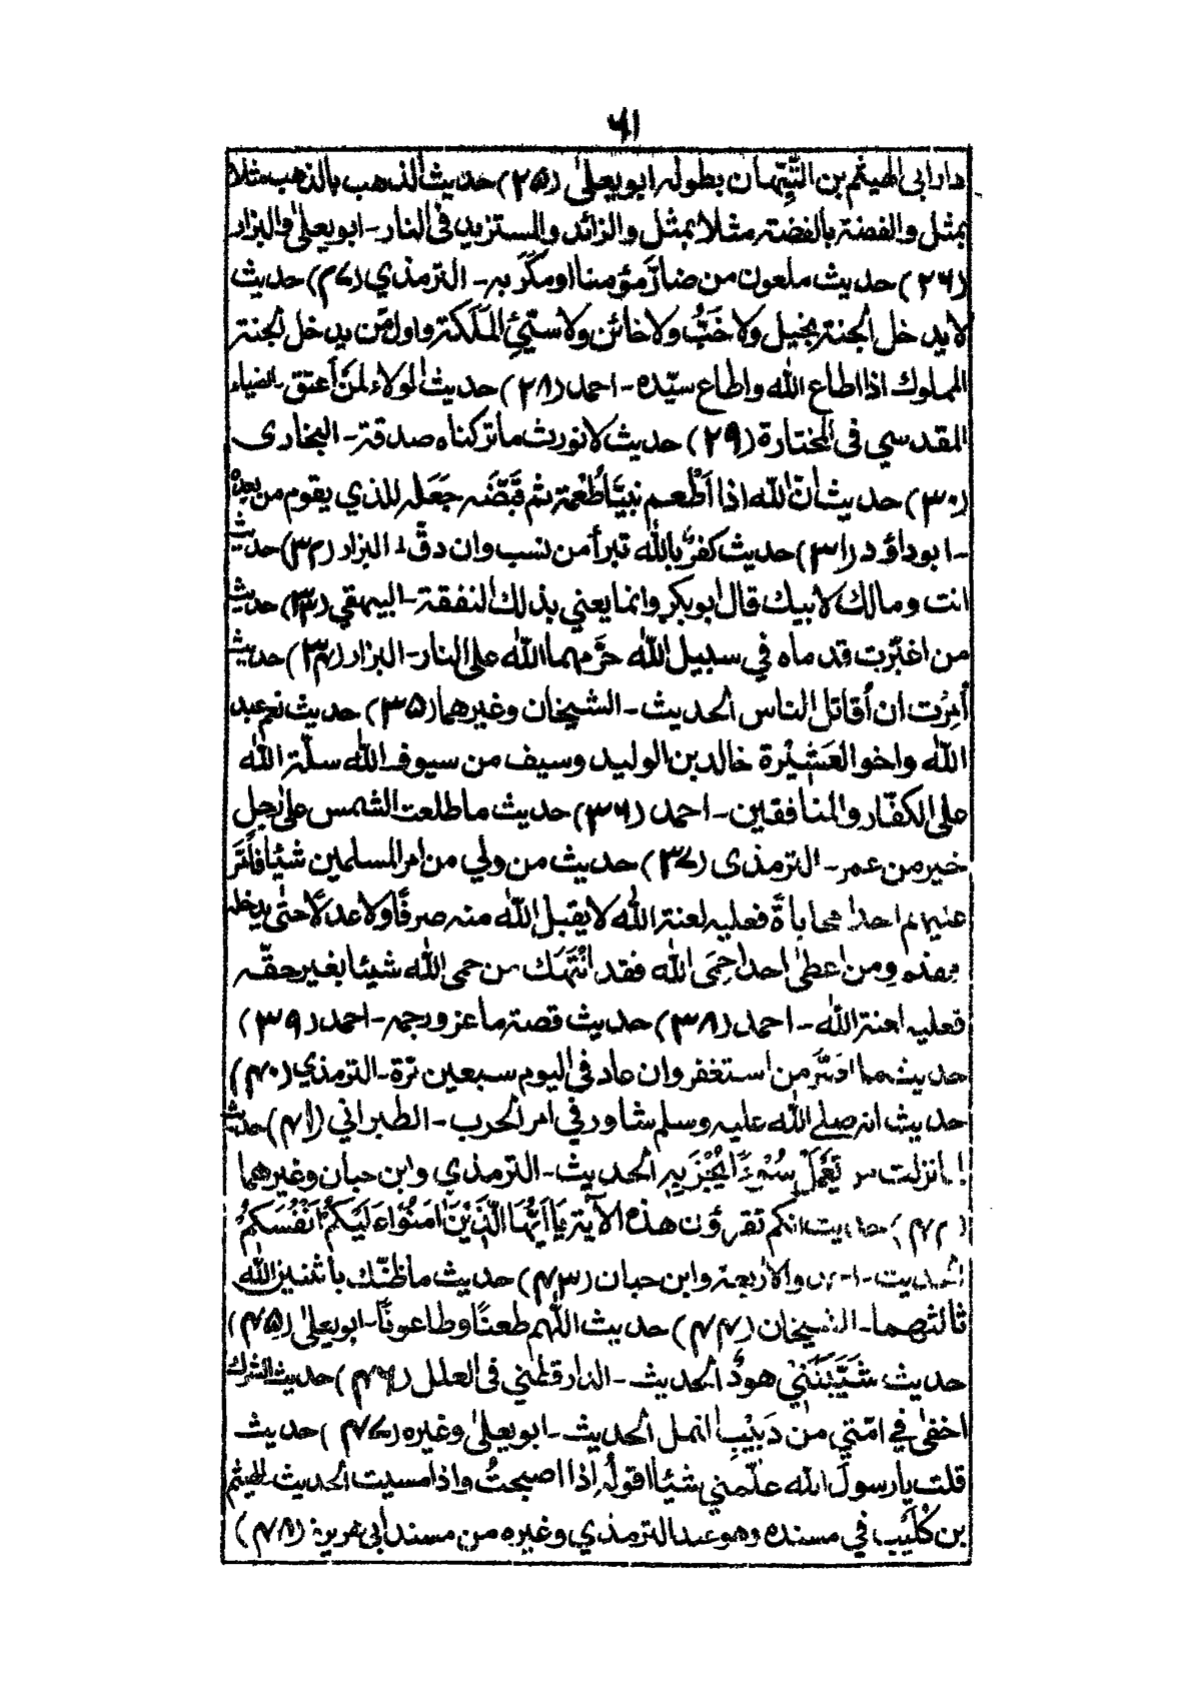 ۶۱
دار ابى الهيثم بن التَّيِّهان بطوله ابو يعلىٰ (۲۵) حديث الذهب بالذهب مثلا
بمثل والفضة بالفضة مثلا بمثل والزائد والمستزيد فى النار ـ ابو يعلىٰ والبزار
(۲۶) حديث ملعون من ضارَّ مؤمنا او مَكَرَ به ـ الترمذي (۲۷) حديث
لا يدخل الجنة بخيل ولا خَبٌّ ولا خائن ولا سيّئ المَلَكة واول مَن يدخل الجنة
المملوك اذا اطاع الله واطاع سيّده ـ احمد (۲۸) حديث الولاء لمن أعتق ـ الضياء
المقدسي فى المختارة (۲۹) حديث لا نورث ما تركناه صدقة ـ البخارى
(۳۰) حديث انّ الله اذا اَطْعم نبيًّا طُعْمة ثم قَبَضَه جَعَله للذي يقوم من بعده
ـ ابو داؤد (۳۱) حديث كفرٌ بالله تبرأ من نسب وان دقّ ـ البزار (۳۲) حديث
انت ومالك لابيك قال ابو بكر وانما يعني بذلك النفقة ـ البيهقي (۳۳) حديث
من اغبرّت قدماه في سبيل الله حرَّمهما الله على النار ـ البزار (۳۴) حديث
اُمِرْت ان اُقاتل الناس الحديث ـ الشيخان وغيرهما (۳۵) حديث نعم عبد
الله واخو العَشِيْرة خالد بن الوليد وسيف من سيوف الله سلّة الله
على الكفّار والمنافقين ـ احمد (۳۶) حديث ما طلعت الشمس على رجل
خير من عمر ـ الترمذى (۳۷) حديث من ولي من امر المسلمين شيئا فأمَّرَ
عليهم احدا محاباةً فعليه لعنة الله لا يقبل الله منه صرفًا ولا عدلًا حتىٰ يدخله
جهنم ومن اعطىٰ احدا حِمَى الله فقد انْتَهَك من حمى الله شيئا بغير حقّه
فعليه لعنة الله ـ احمد (۳۸) حديث قصة ماعز ورجمه ـ احمد (۳۹)
حديث ما اصَرَّ من استغفر وان عاد فى اليوم سبعين مَرّة ـ الترمذي (۴۰)
حديث انه صلے الله عليه وسلم شاور في امر الحرب ـ الطبراني (۴۱) حديث
لما نزلت من يَّعْمَلْ سُوْءًا يُّجْزَ بِهٖ الحديث ـ الترمذي وابن حبان وغيرهما
(۴۲) حديث انكم تقرؤن هذه الآية يَا اَيُّهَا الَّذِيْنَ اٰمَنُوْا عَلَيْكُمْ اَنْفُسَكُمْ
الحديث ـ احمد والاربعة وابن حبان (۴۳) حديث ما ظنّك باثنين الله
ثالثهما ـ الشيخان (۴۴) حديث اللّٰهم طعنًا وطاعونًا ـ ابو يعلىٰ (۴۵)
حديث شَيَّبَتْنِيْ هودٌ الحديث ـ الدار قطني فى العلل (۴۶) حديث الشرك
اخفىٰ في امّتي من دَبِيْبِ النمل الحديث ـ ابو يعلىٰ وغيره (۴۷) حديث
قلت يا رسولَ الله علّمني شيئا اقولُه اِذا اصبحتُ واذا امسيت الحديث ـ الهيثم
بن كُلَيْب في مسنده وهو عند الترمذي وغيره من مسند ابى هريرة (۴۸)